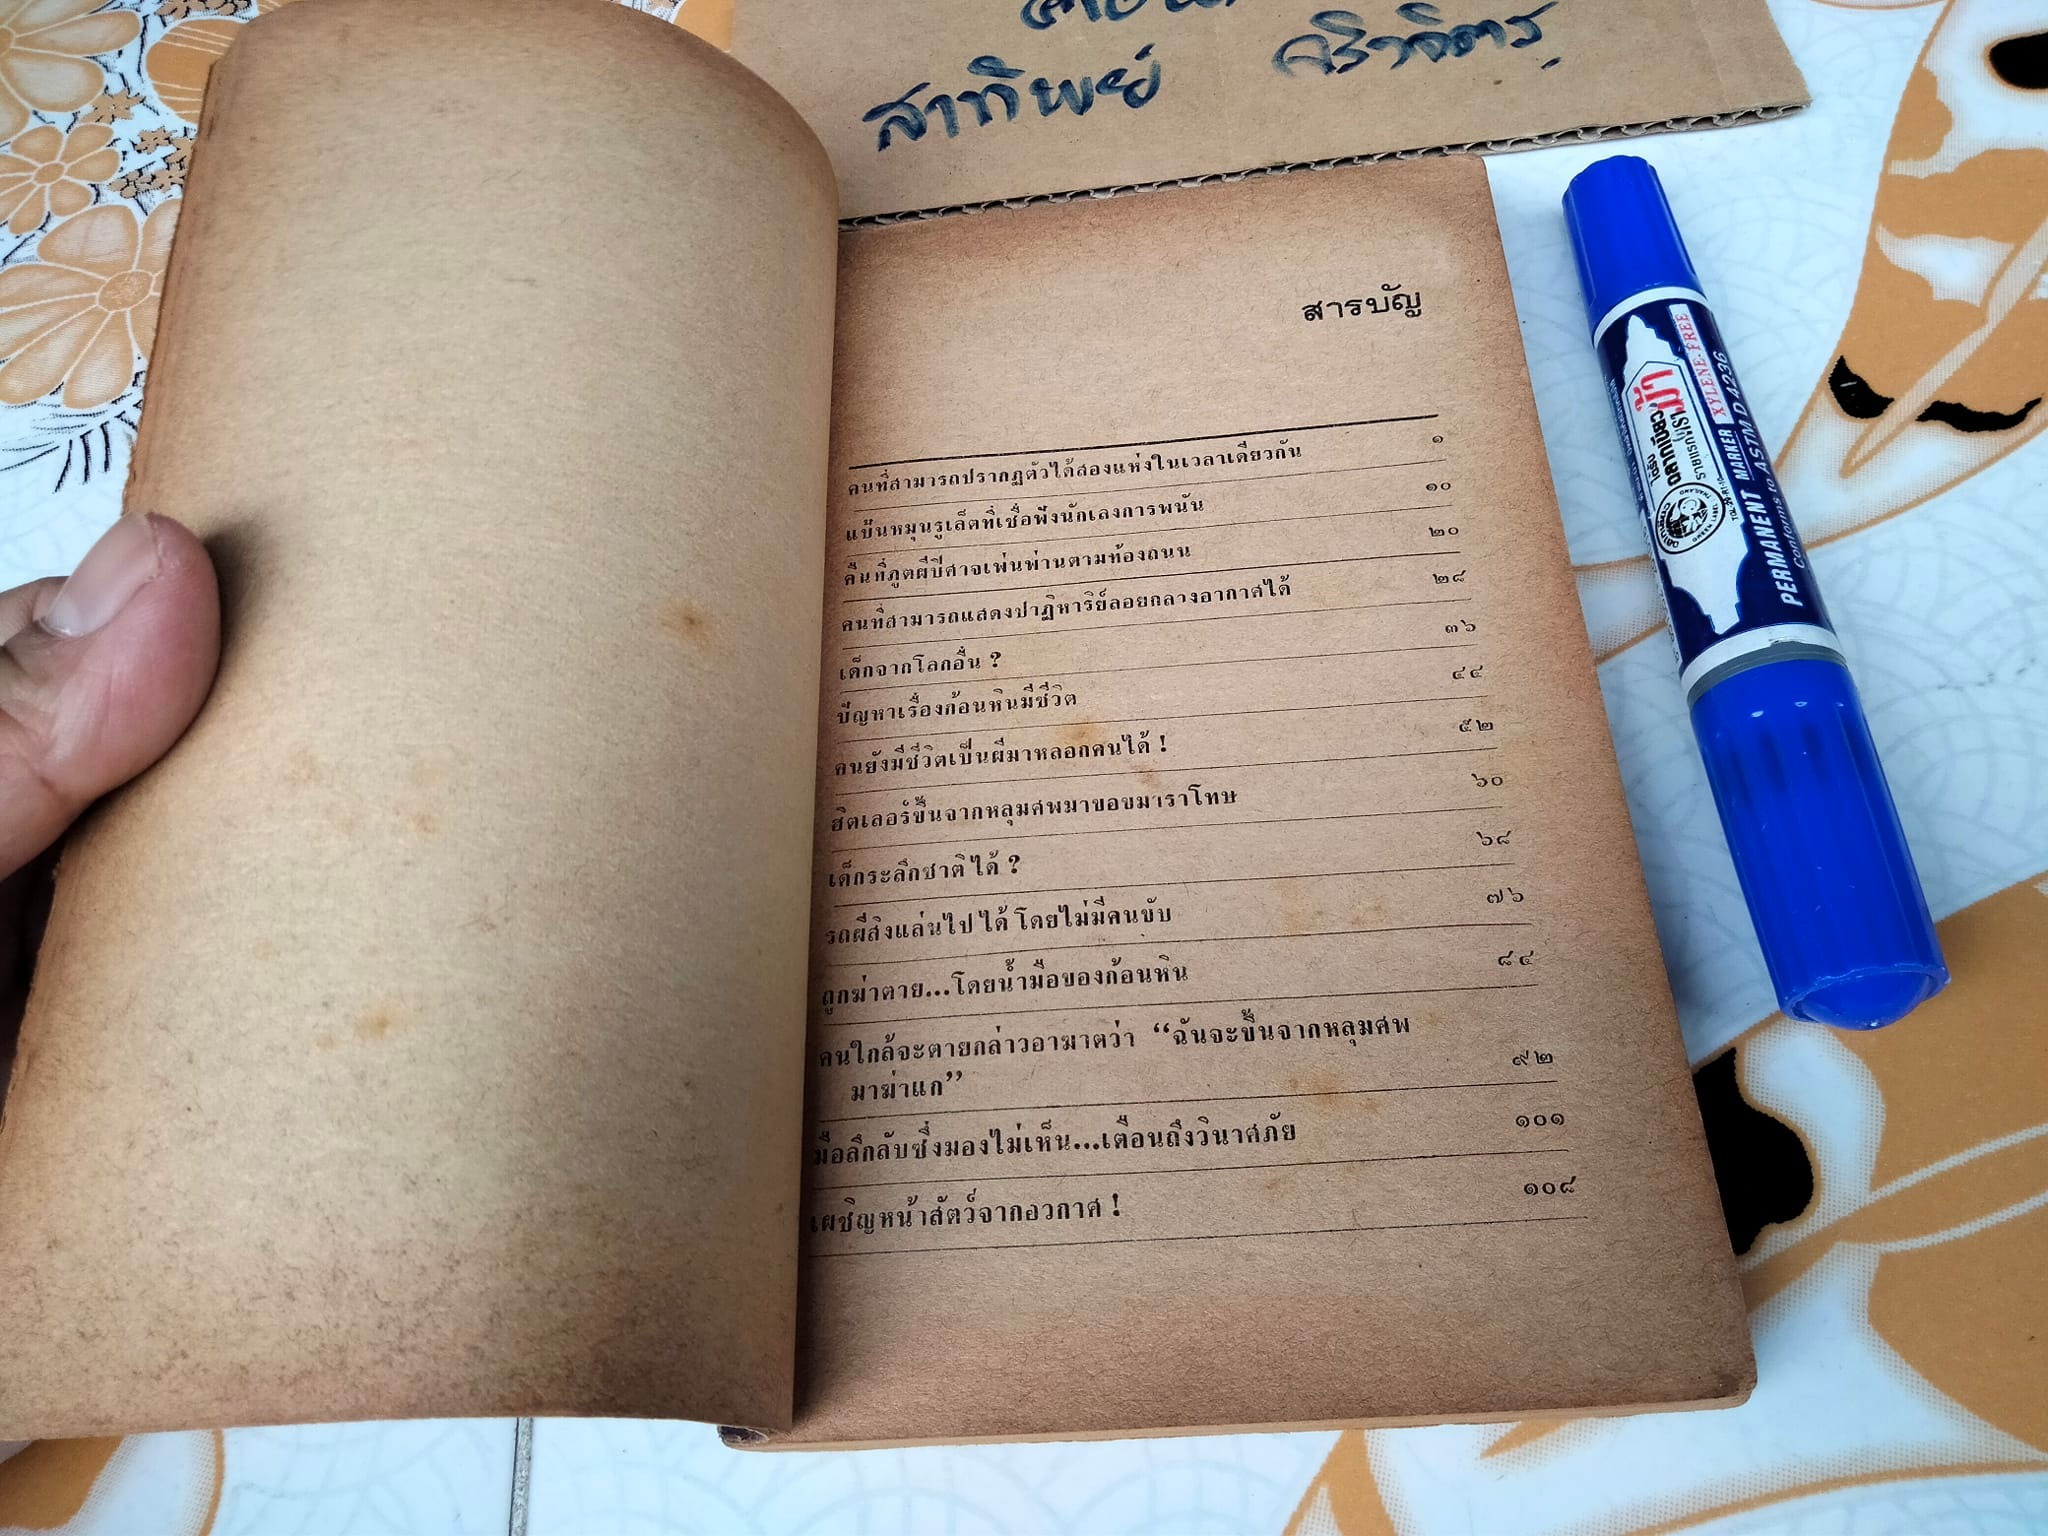 สาทิพย์ จริวจิตร
สารบัญ
คนที่สามารถปรากฏตัวได้สองแห่งในเวลาเดียวกัน ๑
แป้นหมุนรูเล็ตที่เชื่อฟังนักเลงการพนัน ๑๐
คืนที่ภูตผีปีศาจเพ่นพ่านตามท้องถนน ๒๐
คนที่สามารถแสดงปาฏิหาริย์ลอยกลางอากาศได้ ๒๘
เด็กจากโลกอื่น ? ๓๖
ปัญหาเรื่องก้อนหินมีชีวิต ๔๔
คนยังมีชีวิตเป็นผีมาหลอกคนได้ ! ๕๒
ฮิตเลอร์ขึ้นจากหลุมศพมาขอขมาราโทษ ๖๐
เด็กระลึกชาติได้ ? ๖๘
รถผีสิงแล่นไปได้โดยไม่มีคนขับ ๗๖
ถูกฆ่าตาย...โดยน้ำมือของก้อนหิน ๘๔
คนใกล้จะตายกล่าวอาฆาตว่า “ฉันจะขึ้นจากหลุมศพ
มาฆ่าแก” ๙๒
มือลึกลับซึ่งมองไม่เห็น...เตือนถึงวินาศภัย ๑๐๑
เผชิญหน้าสัตว์จากอวกาศ ! ๑๐๘
ตราม้า
XYLENE-FREE
PERMANENT MARKER
Conforms to ASTM D4236